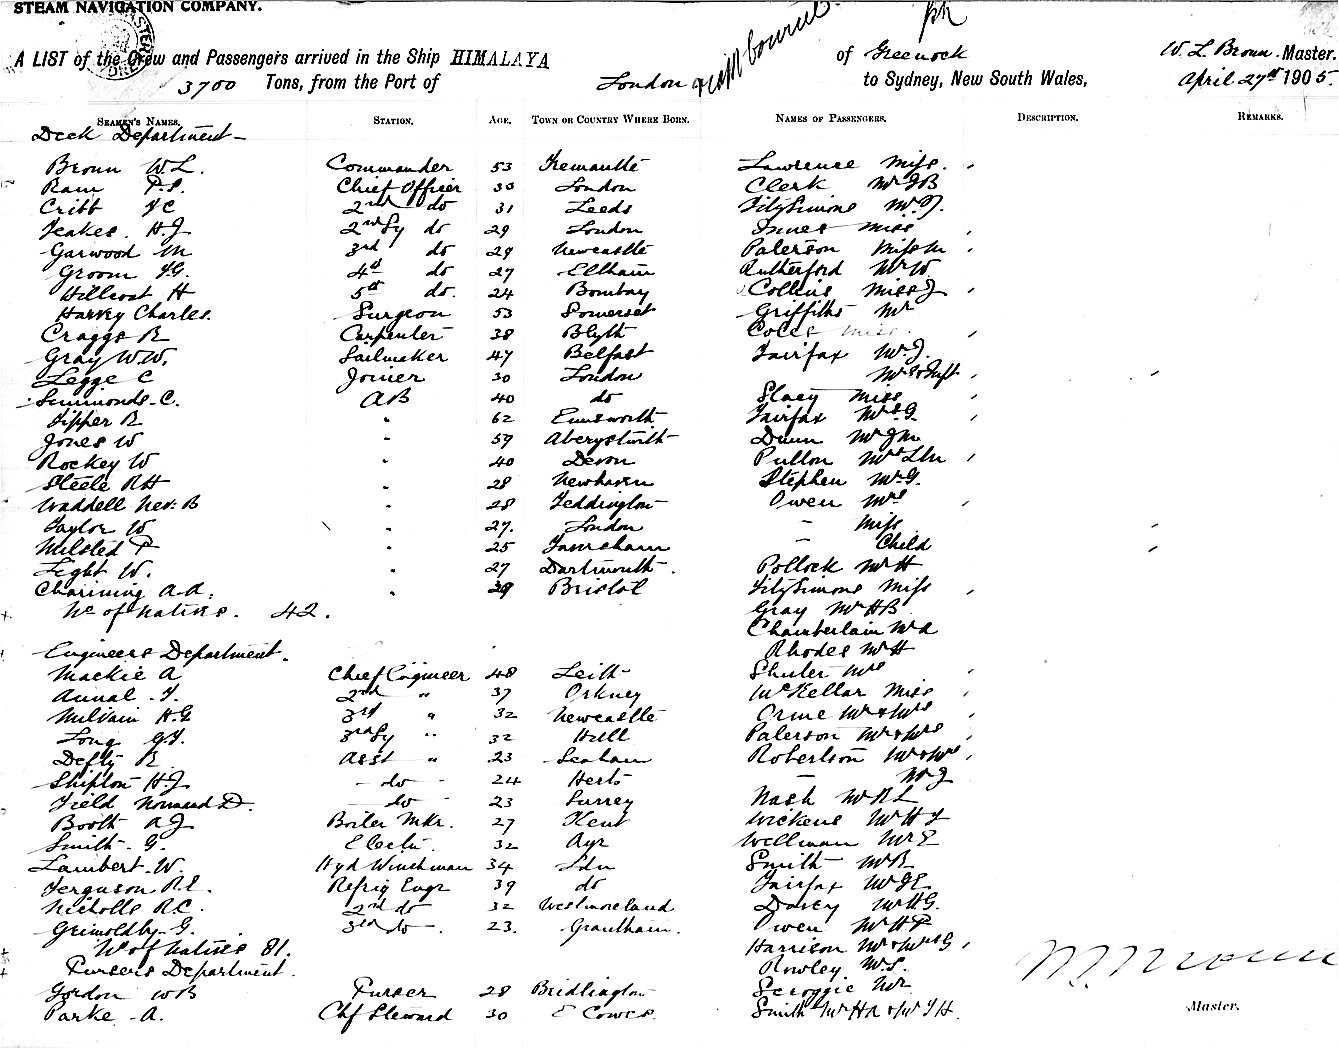 STEAM NAVIGATION COMPANY.
A LIST of the Crew and Passengers arrived in the Ship HIMALAYA of Greenock W. L. Broun. Master.
3700 Tons, from the Port of London & Melbourne to Sydney, New South Wales, April 27th 1905.
SEAMEN'S NAMES. STATION. AGE. TOWN OR COUNTRY WHERE BORN. NAMES OF PASSENGERS. DESCRIPTION. REMARKS.
Deck Department
Broun W.L. Commander 53 Fremantle Lawrence Miss.
Ram P.S. Chief Officer 30 London Clerk Mr J B
Cribb J C 2nd do 31 Leeds FitzSimons Mr T.
Jeakes. H.J 2nd Sy do 29 London Innes Miss
Garwood M 3rd do 29 Newcastle Paterson Miss M
Groom J G. 4th do 27 Eltham Rutherford Mr W.
Hillcoat H 5th do. 24 Bombay Collins Miss J
Harvey Charles. Surgeon 53 Somerset Griffiths Mr
Craggs R Carpenter 38 Blyth Coles Miss
Gray W.W. Sailmaker 47 Belfast Fairfax Mr J.
Legge C Joiner 30 London Mrs & Inft
Simmonds. C. AB 40 do Stacy Miss
Tipper R " 62 Emsworth Fairfax Mrs G.
Jones W " 59 Aberystwith Dunn Mr J M
Rockey W " 40 Devon Pullon Mrs
Steele R H " 28 Newhaven Stephen Mr G.
Waddell Nev. B " 28 Teddington Owen Mrs
Taylor W " 27. London — Miss
Milsted F " 25 Faversham — Child
Light W. " 27 Dartmouth. Pollock Mr H
Channing A.A. " 39 Bristol FitzSimons Miss
No of Natives. 42. Gray Mr H B
Chamberlain Mr A
Engineers Department. Rhodes Mr H
Mackie A Chief Engineer 48 Leith Shuter Mrs
Annal. J. 2nd " 37 Orkney McKellar Miss
Milvain H.G 3rd " 32 Newcastle Orme Mr & Mrs
Long G.J. 3rd Sy " 32 Hull Paterson Mr & Mrs
Defty R. Asst " 23 Seaham Robertson Mr & Mrs
Shipton H.J — do — 24 Herts — Mr J
Field Normand D. — do — 23 Surrey Nash Mr R L
Booth A J Boiler Mkr. 27 Kent Wickens Mr H J
Smith. G. Electn. 32 Ayr Wellman Mr E
Lambert. W. Hyd Winchman 34 Ldn Smith Mr B
Ferguson R.E. Refrig Engr 39 do Fairfax Mr J E
Nicholls R.C. 2nd do 32 Westmoreland Davey Mr H G.
Grimoldby. G. 3rd do 23. Grantham. Owen Mr H P
No of Natives 81. Harrison Mr & Mrs G
Pursers Department. Rowley Mr S.
Gordon W B Purser 28 Bridlington Scroggie Mr
Parke. A. Chf Steward 30 E Cowes. Smith Mr H A & Mr J H.
Master.